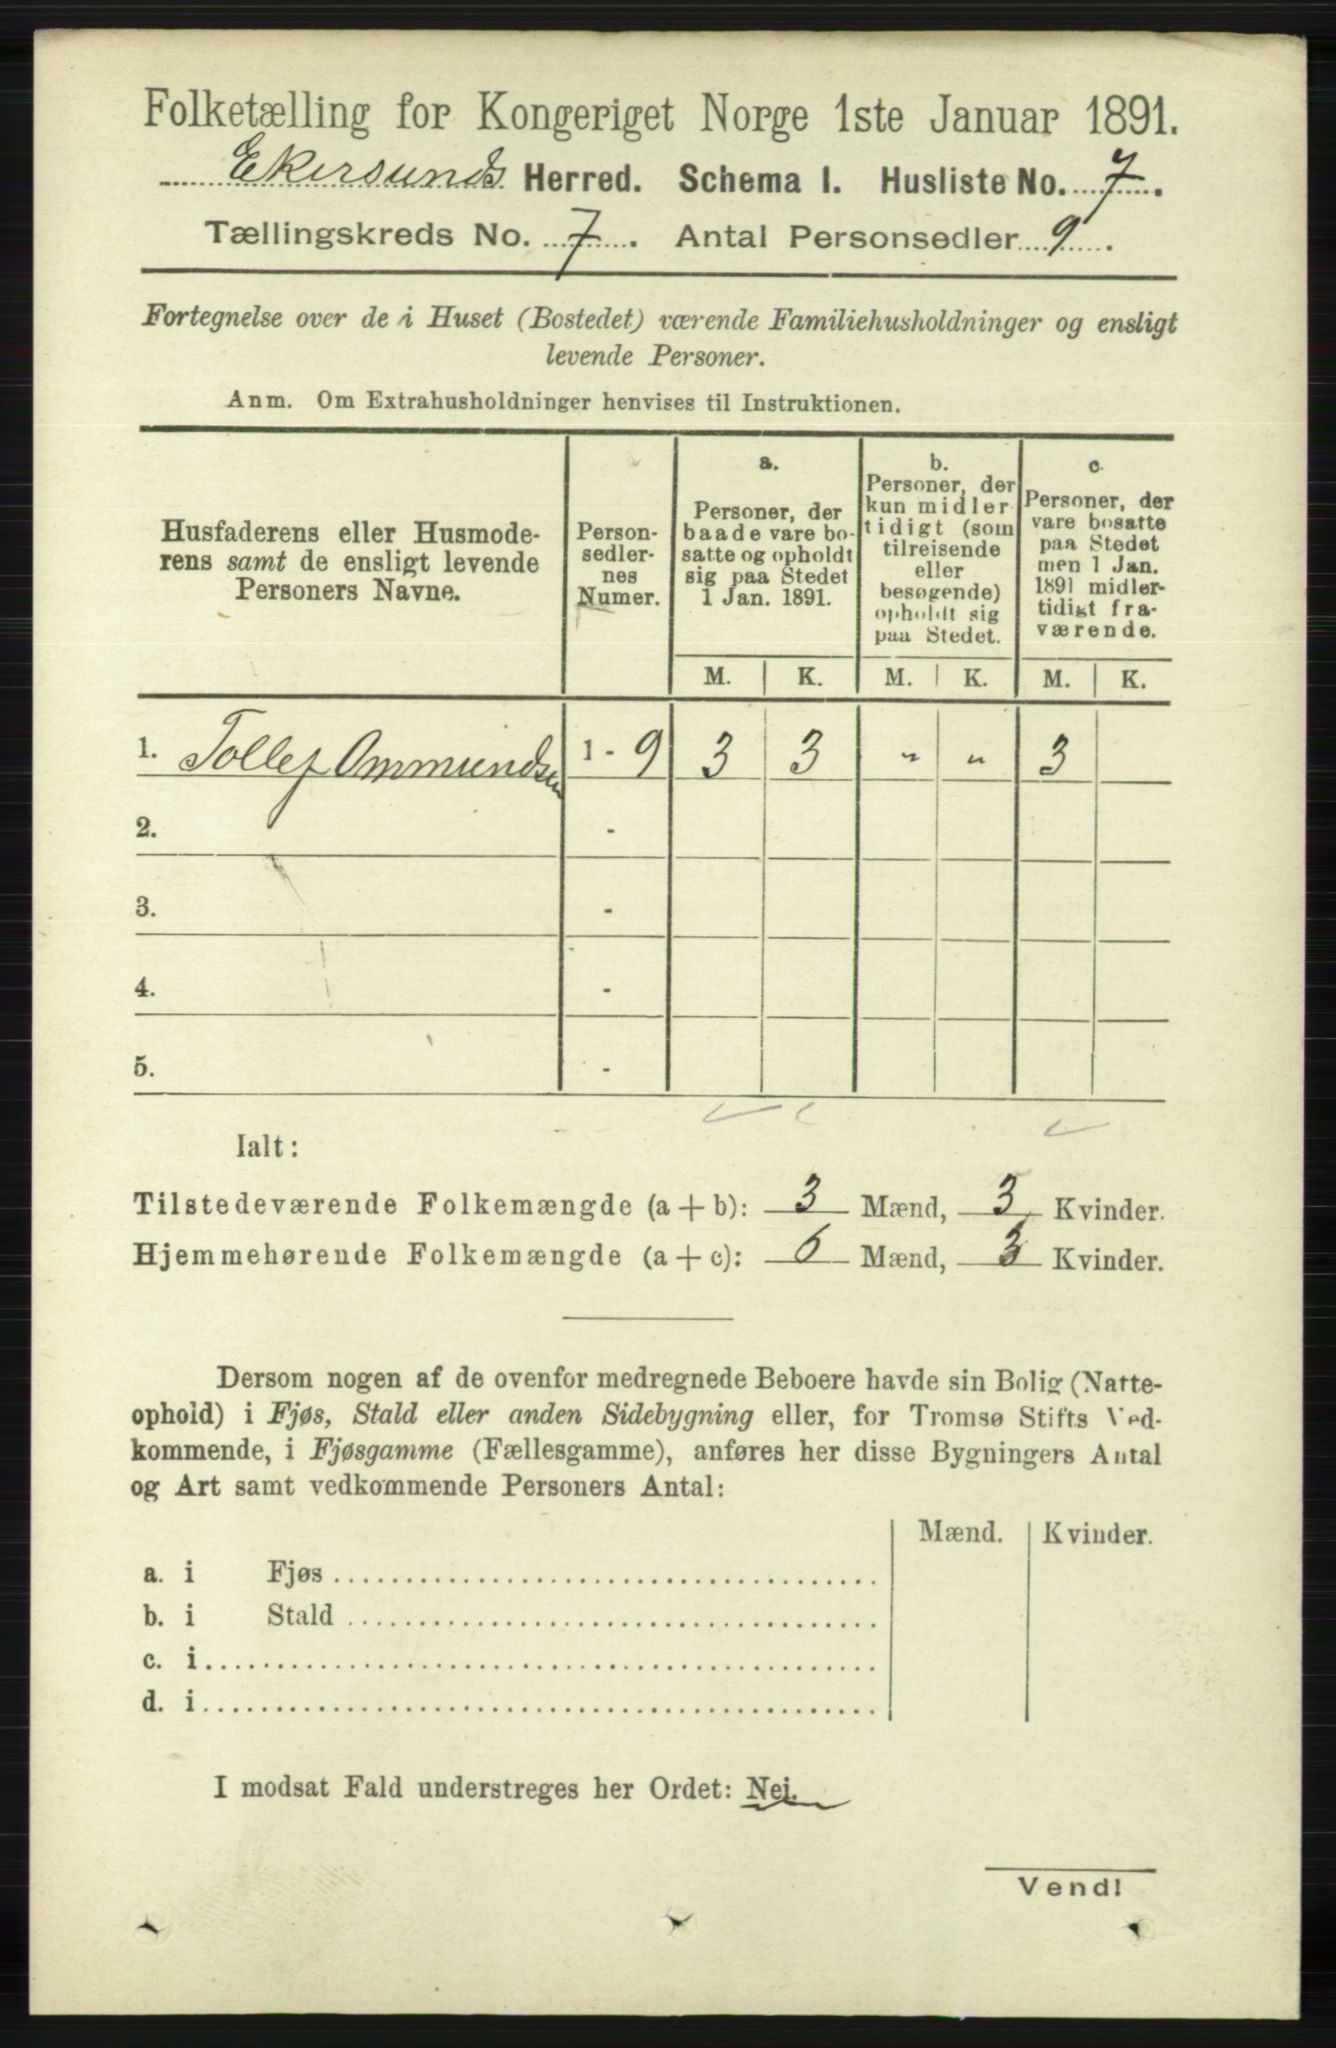 Folketælling for Kongeriget Norge 1ste Januar 1891.
Ekersunds Herred. Schema I. Husliste No. 7.
Tællingskreds No. 7. Antal Personsedler 9.
Fortegnelse over de i Huset (Bostedet) værende Familiehusholdninger og ensligt
levende Personer.
Anm. Om Extrahusholdninger henvises til Instruktionen.
Husfaderens eller Husmode-
rens samt de ensligt levende
Personers Navne.
Person-
sedler-
nes
Numer.
a.
Personer, der
baade vare bo-
satte og opholdt
sig paa Stedet
1 Jan. 1891.
b.
Personer, der
kun midler
tidigt (som
tilreisende
eller
besøgende)
opholdt sig
paa Stedet.
c.
Personer, der
vare bosatte
paa Stedet
men 1 Jan.
1891 midler-
tidigt fra-
værende.
M. K. M. K. M. K.
1. Tollef Ommundsen 1 - 9 3 3 " " 3
2. -
3. -
4. -
5. -
Ialt:
Tilstedeværende Folkemængde (a + b): 3 Mænd, 3 Kvinder.
Hjemmehørende Folkemængde (a + c): 6 Mænd, 3 Kvinder.
Dersom nogen af de ovenfor medregnede Beboere havde sin Bolig (Natte-
ophold) i Fjøs, Stald eller anden Sidebygning eller, for Tromsø Stifts Ved-
kommende, i Fjøsgamme (Fællesgamme), anføres her disse Bygningers Antal
og Art samt vedkommende Personers Antal:
Mænd. Kvinder.
a. i Fjøs
b. i Stald
c. i
d. i
I modsat Fald understreges her Ordet: Nei.
Vend!